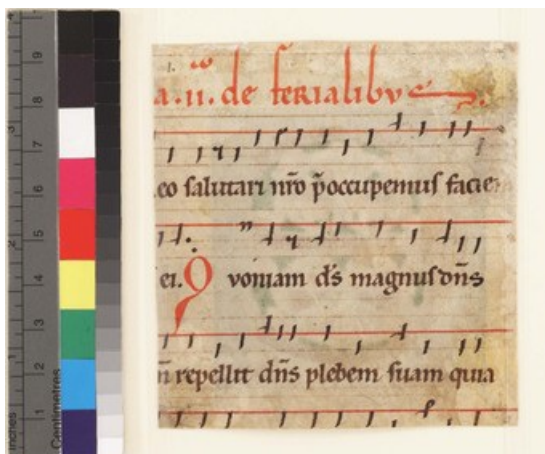 a.ii. de ferialibus
eo salutari nr̄o p̄occupemus facie
ei. Qvoniam ds̄ magnus dn̄s
n̄ repellit dn̄s plebem suam quia
9
8
7
6
5
4
3
2
1
Inches
Centimetres